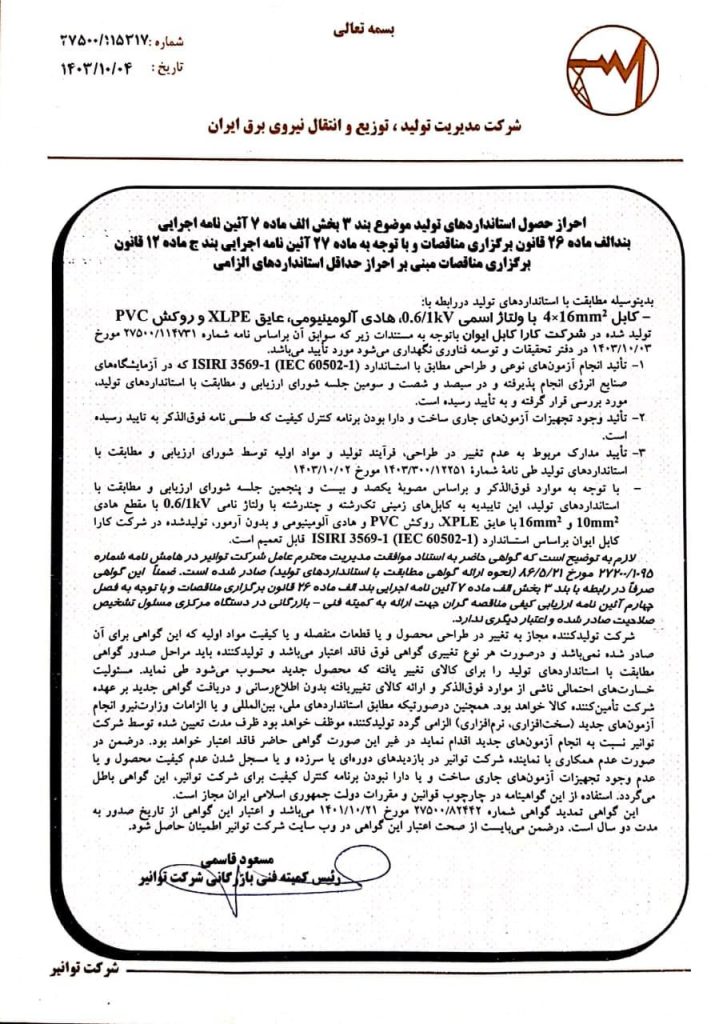 بسمه تعالی
شماره : ۲۷۵۰۰/۱۱۵۳۱۷
تاریخ : ۱۴۰۳/۱۰/۰۴
شرکت مدیریت تولید ، توزیع و انتقال نیروی برق ایران
احراز حصول استانداردهای تولید موضوع بند ۳ بخش الف ماده ۷ آئین نامه اجرایی
بندالف ماده ۲۶ قانون برگزاری مناقصات و با توجه به ماده ۲۷ آئین نامه اجرایی بند ج ماده ۱۲ قانون
برگزاری مناقصات مبنی بر احراز حداقل استانداردهای الزامی
بدینوسیله مطابقت با استانداردهای تولید دررابطه با:
– کابل 4×16mm² با ولتاژ اسمی 0.6/1kV، هادی آلومینیومی، عایق XLPE و روکش PVC
تولید شده در شرکت کارا کابل ایوان باتوجه به مستندات زیر که سوابق آن براساس نامه شماره ۲۷۵۰۰/۱۱۴۷۳۱ مورخ
۱۴۰۳/۱۰/۰۳ در دفتر تحقیقات و توسعه فناوری نگهداری می‌شود مورد تأیید می‌باشد.
۱- تأئید انجام آزمون‌های نوعی و طراحی مطابق با استاندارد ISIRI 3569-1 (IEC 60502-1) که در آزمایشگاه‌های
صنایع انرژی انجام پذیرفته و در سیصد و شصت و سومین جلسه شورای ارزیابی و مطابقت با استانداردهای تولید،
مورد بررسی قرار گرفته و به تأیید رسیده است.
۲- تأئید وجود تجهیزات آزمون‌های جاری ساخت و دارا بودن برنامه کنترل کیفیت که طی نامه فوق‌الذکر به تایید رسیده
است.
۳- تأیید مدارک مربوط به عدم تغییر در طراحی، فرآیند تولید و مواد اولیه توسط شورای ارزیابی و مطابقت با
استانداردهای تولید طی نامۀ شمارۀ ۱۴۰۳/۳۰۰/۱۲۲۵۱ مورخ ۱۴۰۳/۱۰/۰۲
- با توجه به موارد فوق‌الذکر و براساس مصوبۀ یکصد و بیست و پنجمین جلسه شورای ارزیابی و مطابقت با
استانداردهای تولید، این تاییدیه به کابل‌های زمینی تکرشته و چندرشته با ولتاژ نامی 0.6/1kV با مقطع هادی
10mm² و 16mm² با عایق XPLE، روکش PVC و هادی آلومینیومی و بدون آرمور، تولیدشده در شرکت کارا
کابل ایوان براساس استاندارد ISIRI 3569-1 (IEC 60502-1) قابل تعمیم است.
لازم به توضیح است که گواهی حاضر به استناد موافقت مدیریت محترم عامل شرکت توانیر در هامش نامه شماره
۲۷۲۰۰/۱۰۹۵ مورخ ۸۶/۵/۲۱ (نحوه ارائه گواهی مطابقت با استانداردهای تولید) صادر شده است. ضمناً این گواهی
صرفاً در رابطه با بند ۳ بخش الف ماده ۷ آئین نامه اجرایی بند الف ماده ۲۶ قانون برگزاری مناقصات و با توجه به فصل
چهارم آئین نامه ارزیابی کیفی مناقصه گران جهت ارائه به کمیته فنی – بازرگانی در دستگاه مرکزی مسئول تشخیص
صلاحیت صادر شده و اعتبار دیگری ندارد.
شرکت تولیدکننده مجاز به تغییر در طراحی محصول و یا قطعات منفصله و یا کیفیت مواد اولیه که این گواهی برای آن
صادر شده نمی‌باشد و درصورت هر نوع تغییری گواهی فوق فاقد اعتبار می‌باشد و تولیدکننده باید مراحل صدور گواهی
مطابقت با استانداردهای تولید را برای کالای تغییر یافته که محصول جدید محسوب می‌شود طی نماید. مسئولیت
خسارت‌های احتمالی ناشی از موارد فوق‌الذکر و ارائه کالای تغییریافته بدون اطلاع‌رسانی و دریافت گواهی جدید بر عهده
شرکت تأمین‌کننده کالا خواهد بود. همچنین درصورتیکه مطابق استانداردهای ملی، بین‌المللی و یا الزامات وزارت‌نیرو انجام
آزمون‌های جدید (سخت‌افزاری، نرم‌افزاری) الزامی گردد تولیدکننده موظف خواهد بود ظرف مدت تعیین شده توسط شرکت
توانیر نسبت به انجام آزمون‌های جدید اقدام نماید در غیر این صورت گواهی حاضر فاقد اعتبار خواهد بود. درضمن در
صورت عدم همکاری با نماینده شرکت توانیر در بازدیدهای دوره‌ای یا سرزده و یا مسجل شدن عدم کیفیت محصول و یا
عدم وجود تجهیزات آزمون‌های جاری ساخت و یا دارا نبودن برنامه کنترل کیفیت برای شرکت توانیر، این گواهی باطل
می‌گردد. استفاده از این گواهینامه در چارچوب قوانین و مقررات دولت جمهوری اسلامی ایران مجاز است.
این گواهی تمدید گواهی شماره ۲۷۵۰۰/۸۲۴۴۲ مورخ ۱۴۰۱/۱۰/۲۱ می‌باشد و اعتبار این گواهی از تاریخ صدور به
مدت دو سال است. درضمن می‌بایست از صحت اعتبار این گواهی در وب سایت شرکت توانیر اطمینان حاصل شود.
مسعود قاسمی
رئیس کمیته فنی بازرگانی شرکت توانیر
شرکت توانیر